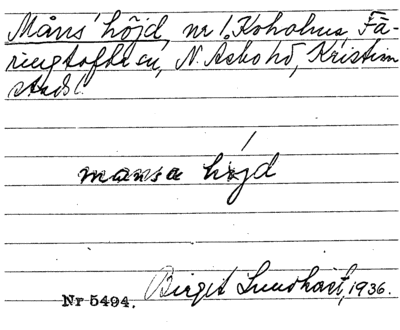 Måns' höjd, nr 1. Koholma, Fä-
ringtofta sn, N. Åsbo hd, Kristian
stads l.
mansa höjd
Nr 5494. Birgit Lundkvist, 1936.